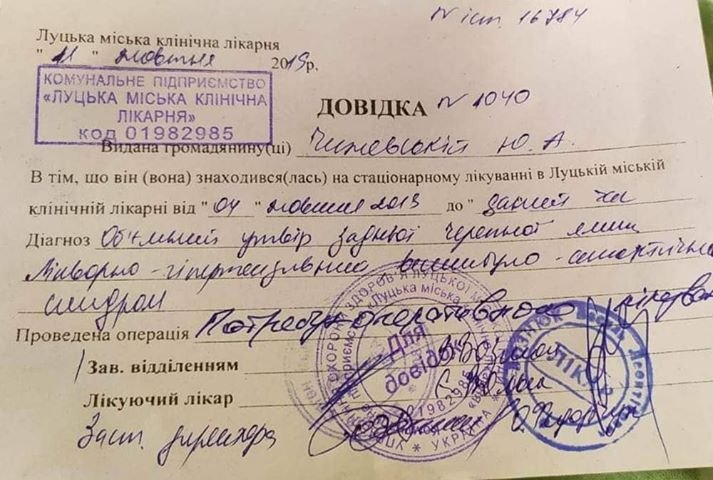 N іст. 16784
Луцька міська клінічна лікарня
"11" жовтня 2019р.
КОМУНАЛЬНЕ ПІДПРИЄМСТВО
«ЛУЦЬКА МІСЬКА КЛІНІЧНА
ЛІКАРНЯ»
код 01982985
ДОВІДКА N 1040
Видана громадянину(ці) Чижевській Ю. А.
В тім, що він (вона) знаходився(лась) на стаціонарному лікуванні в Луцькій міській
клінічній лікарні від "04" жовтня 2019 до " даний час
Діагноз Об'ємний утвір задньої черепної ямки
Лікворно-гіпертензивний
синдром
Проведена операція Потребує оперативного
Зав. відділенням
Лікуючий лікар
Заст. директора
Для
довідок
01982985
УКРАЇНА
ЛІКАР